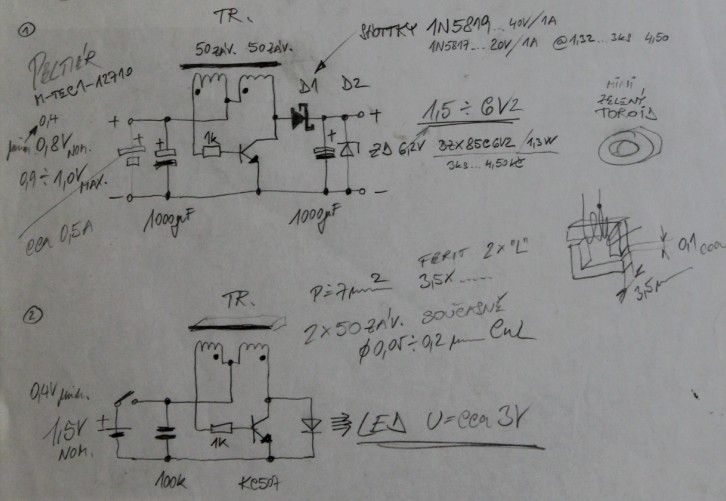 ①
TR.
50 ZÁV. 50 ZÁV.
SHOTTKY 1N5819... 40V/1A
1N5817...20V/1A @1,32...3ks 4,50
PELTIÉR
M-TEC1-12710
0,4
min 0,8V NOM.
0,9 ÷ 1,0V MAX.
cca 0,5A
+
+
+
1k
D1 D2
+
+
-
-
1000µF
1000µF
1,5 ÷ 6V2
ZD 6,2V BZX85C6V2 / 1,3W
3ks... 4,50 Kč
MINI
ZELENÝ
TOROID
0,1 cca
3,5
P = 7mm²
FERIT 2x "L"
3,5x......
2 x 50 ZÁV. SOUČASNĚ
Φ 0,05 ÷ 0,2 mm CuL
②
TR.
0,4V min.
+
1,5V
NOM.
1k
100k
KC507
LED U = cca 3V